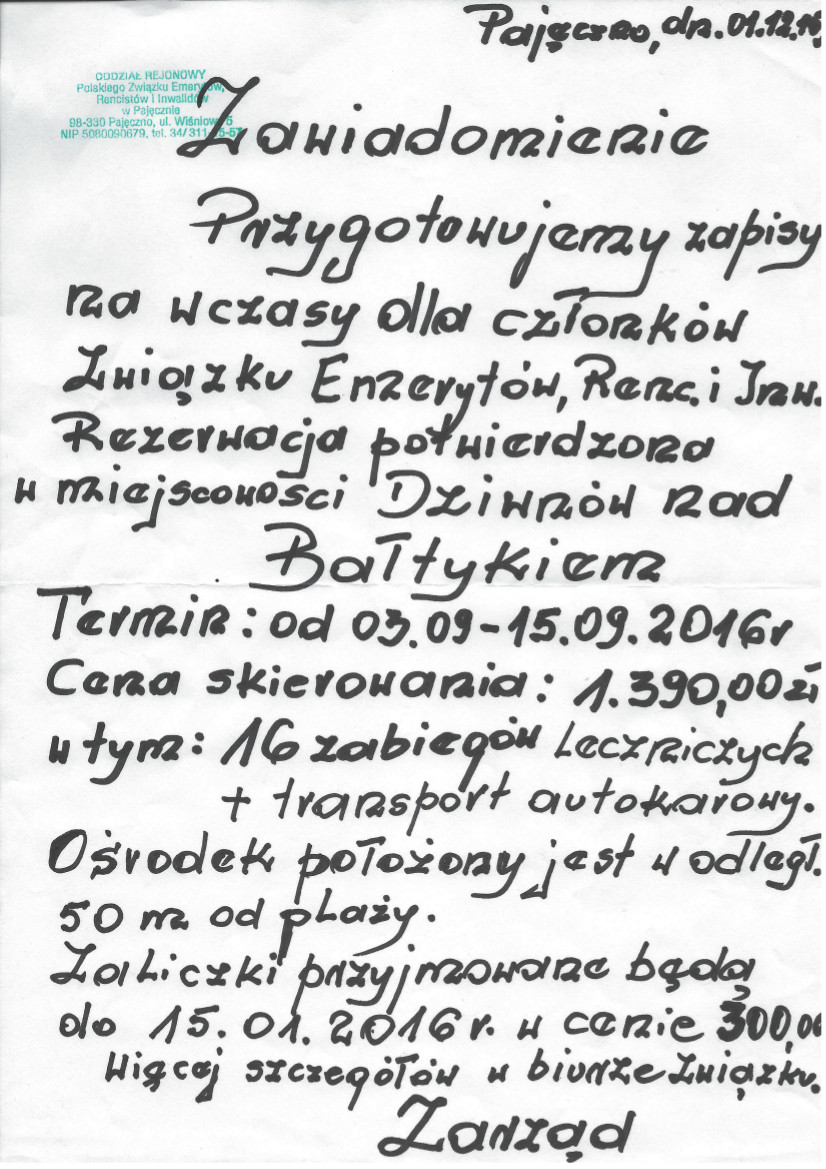 Pajęczno, dn. 01.12.15
ODDZIAŁ REJONOWY
Polskiego Związku Emerytów,
Rencistów i Inwalidów
w Pajęcznie
98-330 Pajęczno, ul. Wiśniowa
NIP 5080090679, tel. 34/311
Zawiadomienie
Przygotowujemy zapisy
na wczasy dlla członków
Związku Emerytów, Renc. i Inw.
Rezerwacja potwierdzona
w miejscowości Dziwnów nad
Bałtykiem
Termin: od 03.09-15.09.2016r
Cena skierowania: 1.390,00 zł
w tym: 16 zabiegów leczniczych
+ transport autokarowy.
Ośrodek położony jest w odległ.
50 m od plaży.
Zaliczki przyjmowane będą
do 15.01.2016 r. w cenie 300,00
Więcej szczegółów w biurze Związku.
Zarząd